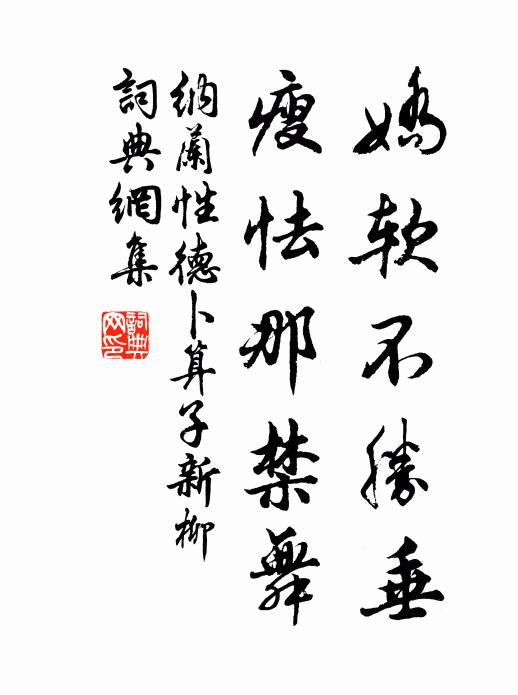 嬌軟不勝垂
瘦怯那禁舞
納蘭性德卜算子新柳
詞典網集
詞典網印